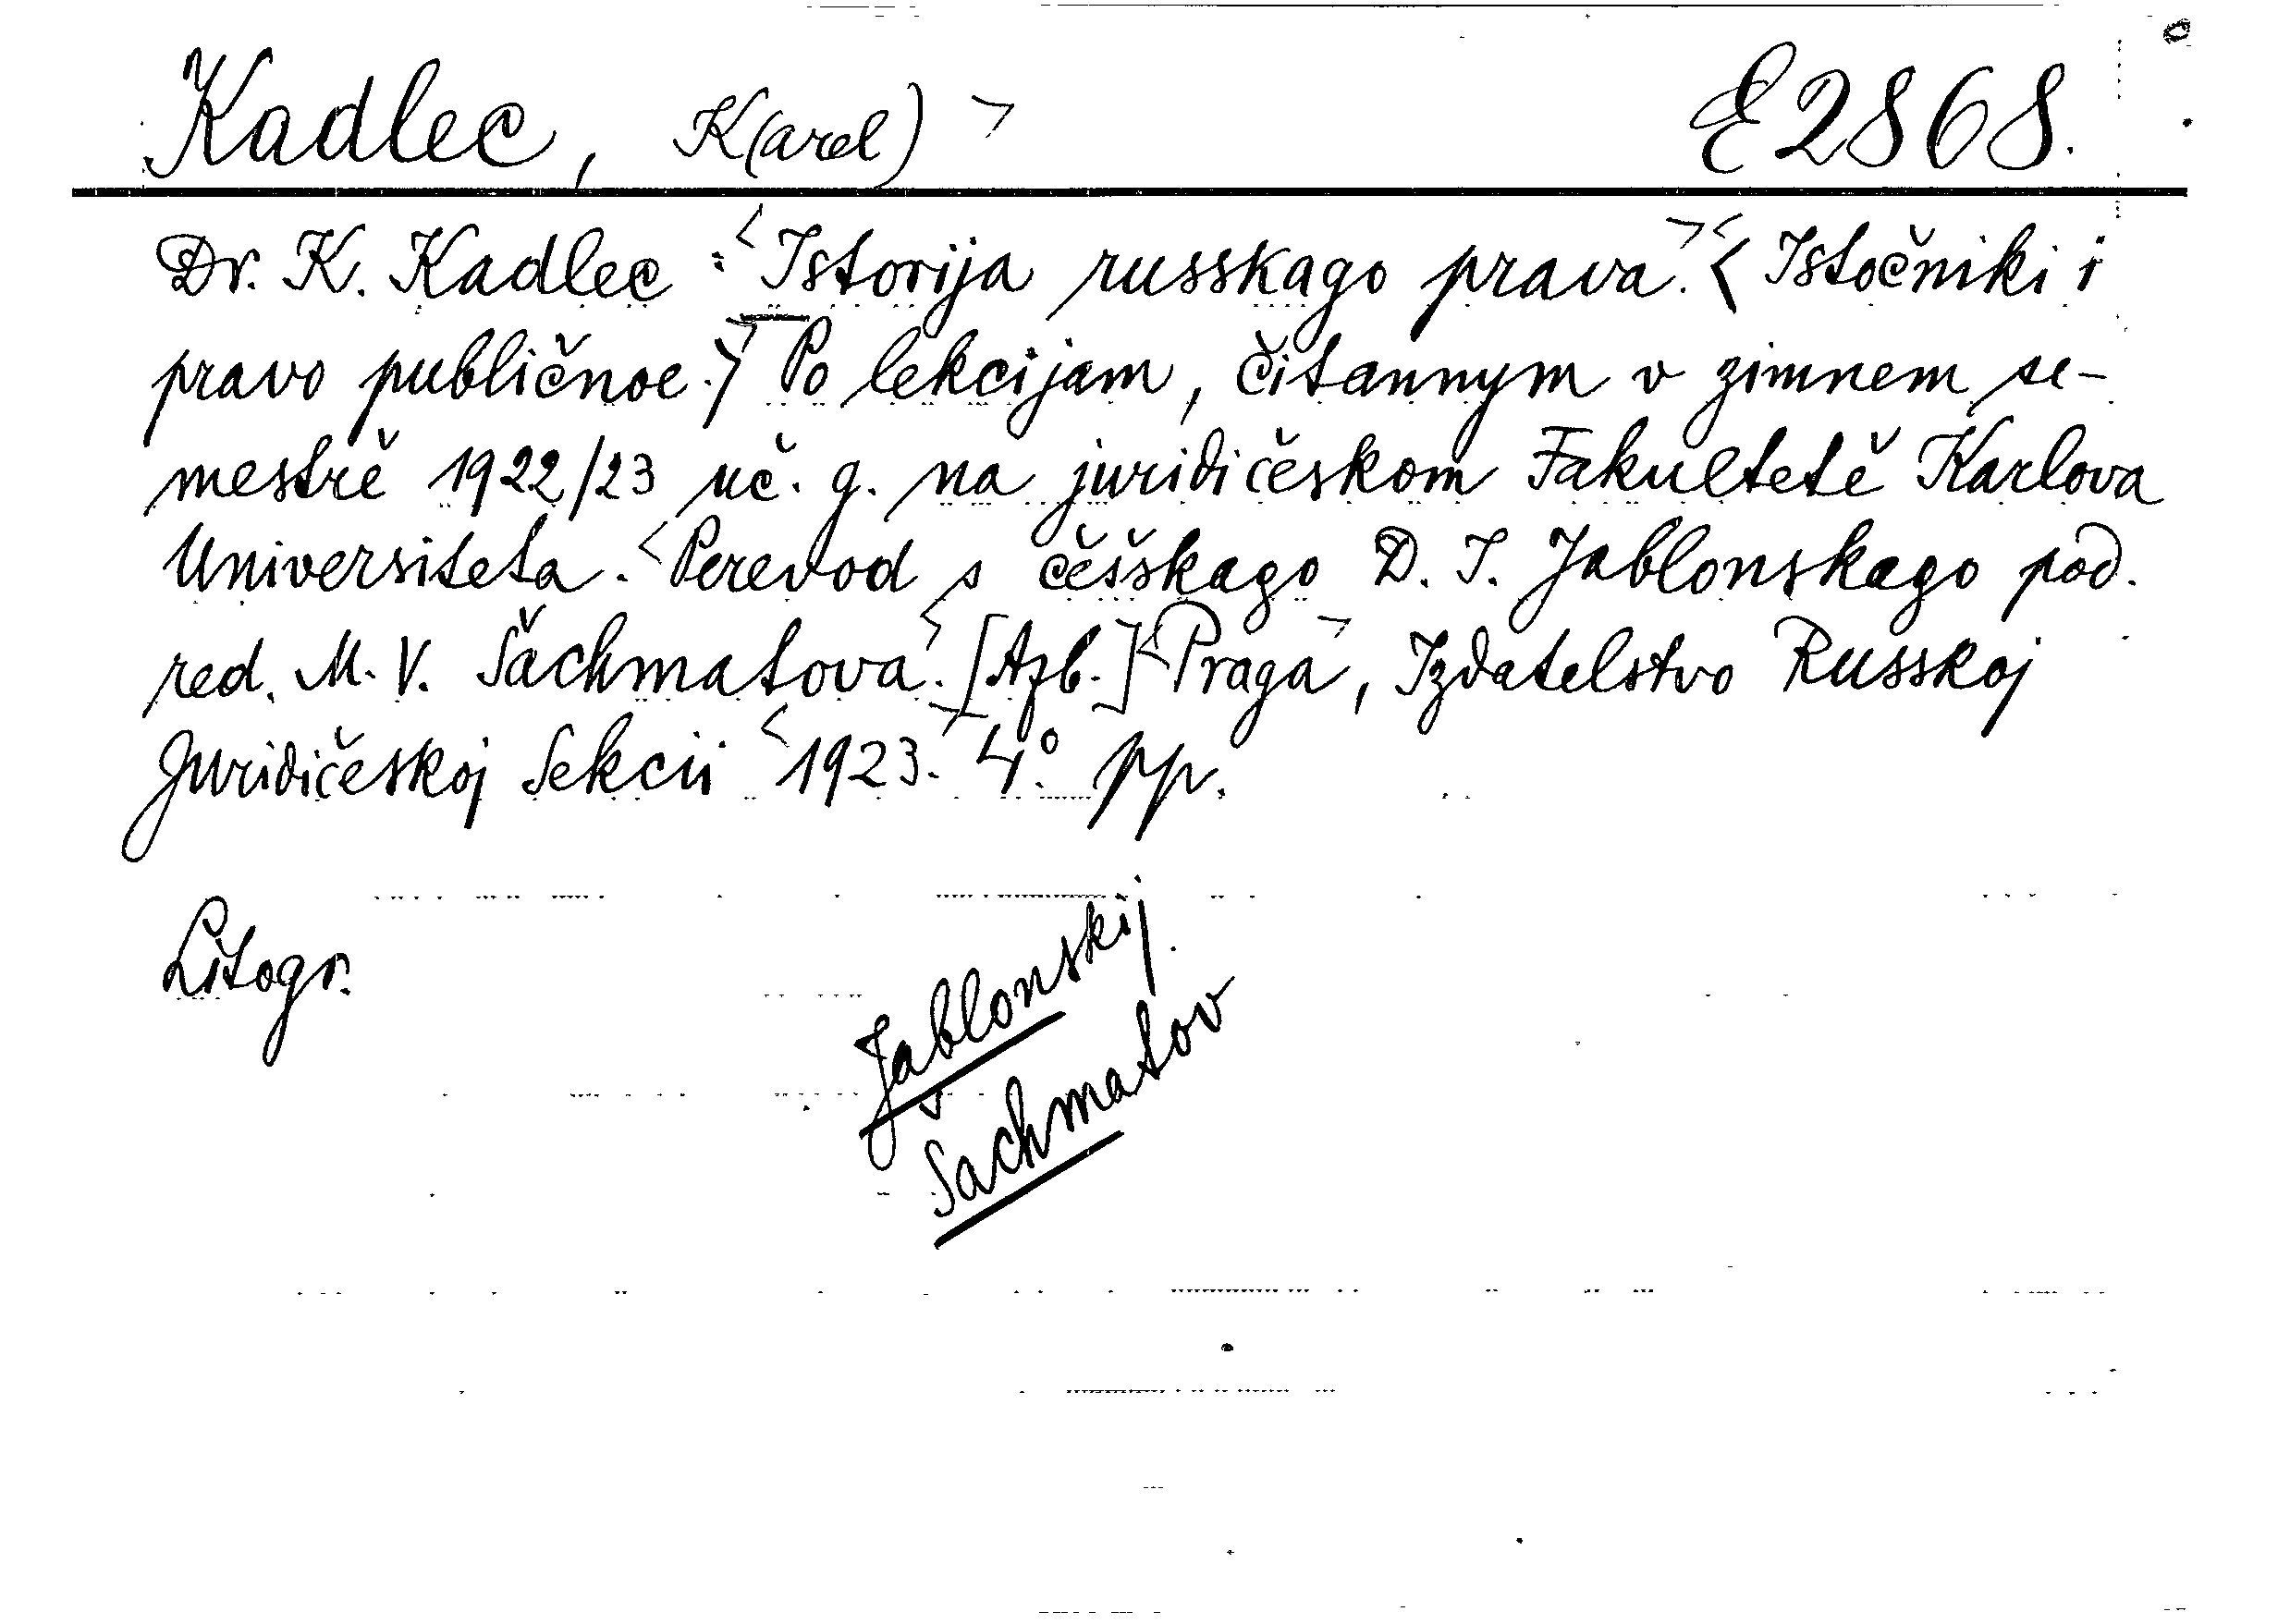 Kadlec, K(arel) E 2868.
Dr. K. Kadlec: Istorija russkago prava. <Istočniki i
pravo publičnoe.> Po lekcijam, čitannym v zimnem se-
mestrě 1922/23 uč. g. na juridičeskom Fakultetě Karlova
Universiteta. Perevod s češskago D. I. Jablonskago pod.
red. M. V. Šachmatova. [Azb.] Praga, Izdatelstvo Russkoj
Juridičeskoj Sekcii 1923. 4°. pp.
Litogr.
Jablonskij.
Šachmatov